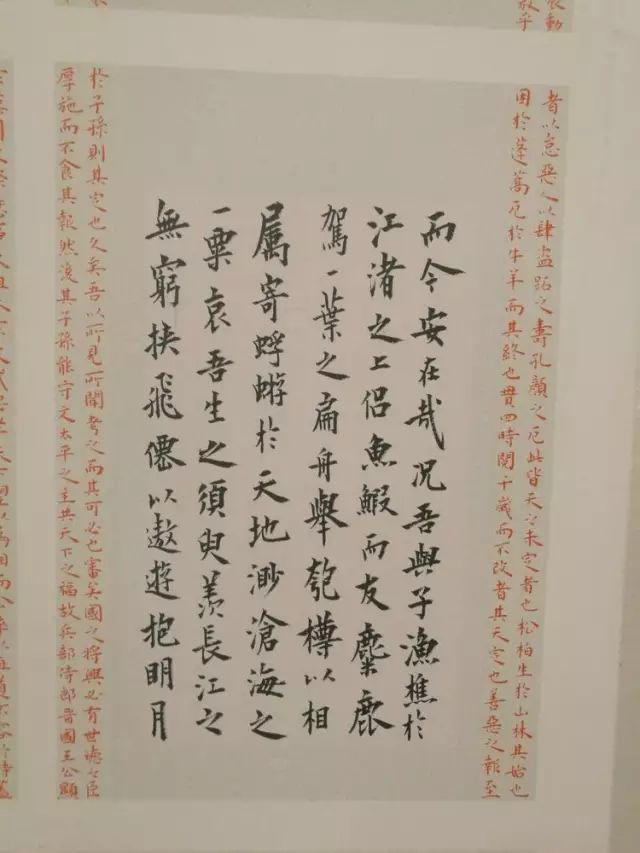 者以怠惡人以肆盜跖之壽孔顏之厄此皆天之未定者也松柏生於山林其始也
困於蓬蒿厄於牛羊而其終也貫四時閱千歲而不改者其天定也善惡之報至
而今安在哉况吾與子漁樵於
江渚之上侶魚鰕而友麋鹿
駕一葉之扁舟舉匏樽以相
属寄蜉蝣於天地渺滄海之
一粟哀吾生之須臾羨長江之
無窮挟飛僊以遨遊抱明月
於子孫則其定也久矣吾以所見所聞考之而其可必也審矣國之將興必有世德之臣
厚施而不食其報然後其子孫能守文太平之主共天下之福故兵部侍郎晉國王公顯